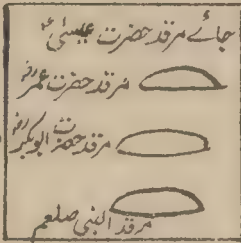 جائے مرقد حضرت عیسیٰؑ
مرقد حضرت عمرؓ
مرقد حضرت ابوبکرؓ
مرقد النبی صلعم